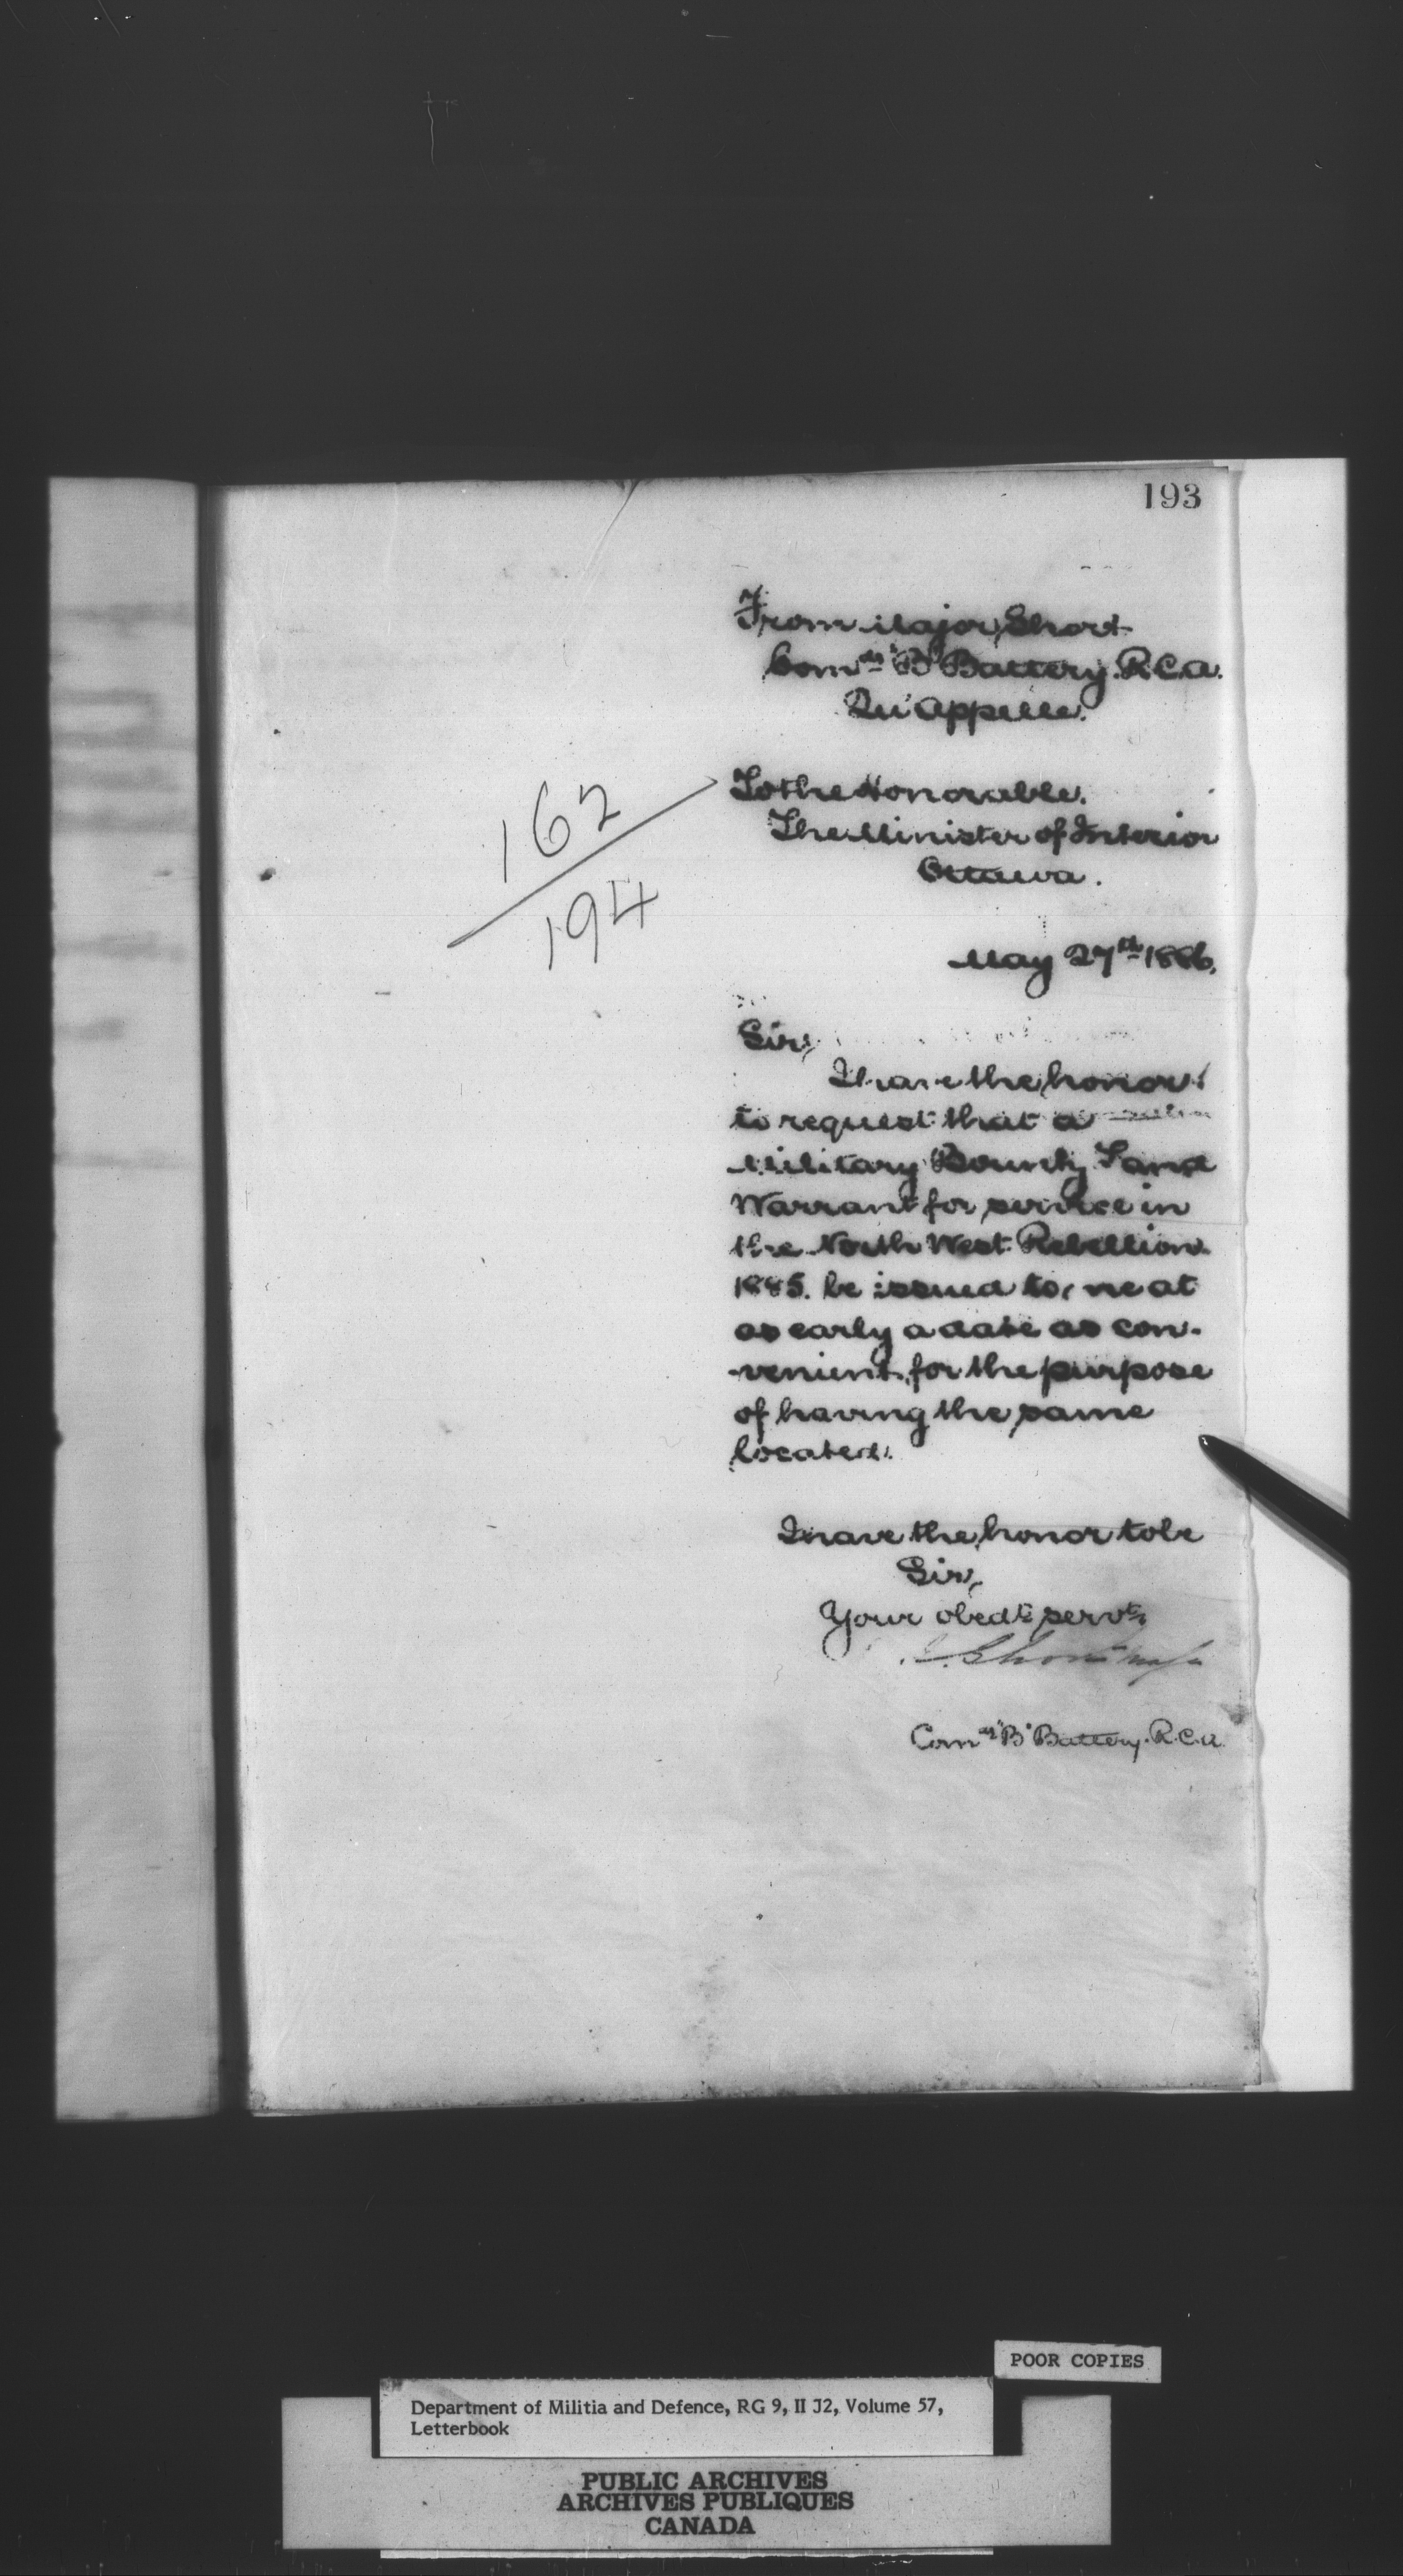 193
From Major Short
Comdg "B" Battery. R.C.A.
Qu'Appelle.
162
194
To the Honorable.
The Minister of Interior
Ottawa.
May 27th 1886.
Sir,
I have the honor
to request that a
Military Bounty Land
Warrant for service in
the North West Rebellion
1885. be issued to me at
as early a date as con-
-venient for the purpose
of having the same
located.
I have the honor to be
Sir,
Your obedt servt
Short Maj
Comdg "B" Battery. R.C.A.
POOR COPIES
Department of Militia and Defence, RG 9, II J2, Volume 57,
Letterbook
PUBLIC ARCHIVES
ARCHIVES PUBLIQUES
CANADA